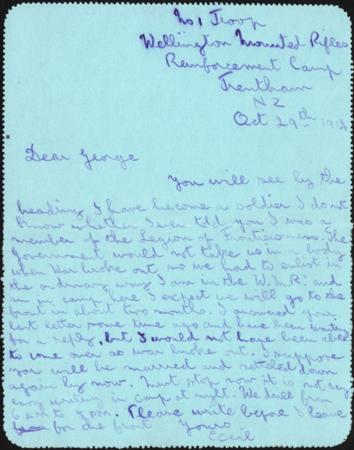 No 1 Troop
Wellington Mounted Rifles
Reinforcement Camp
Trentham
NZ
Oct 29th 1914
Dear George
You will see by the
heading I have become a soldier I dont
know whether I ever told you I was a
member of the Legion of Frontiersmen. The
Government would not take us in a body
when War broke out, so we had to enlist in
the ordinary way I am in the W.M.R. and
am in camp here I expect we will go to the
front in about two months. I answered your
last letter some time ago and have been waiting
for a reply, but I would not have been able
to come over as war broke out. I suppose
you will be married and settled down
again by now. Must stop now it is not very
easy writing in camp at night. We drill from
6 am to 5 pm. Please write before I leave
for the front Yours
Cecil